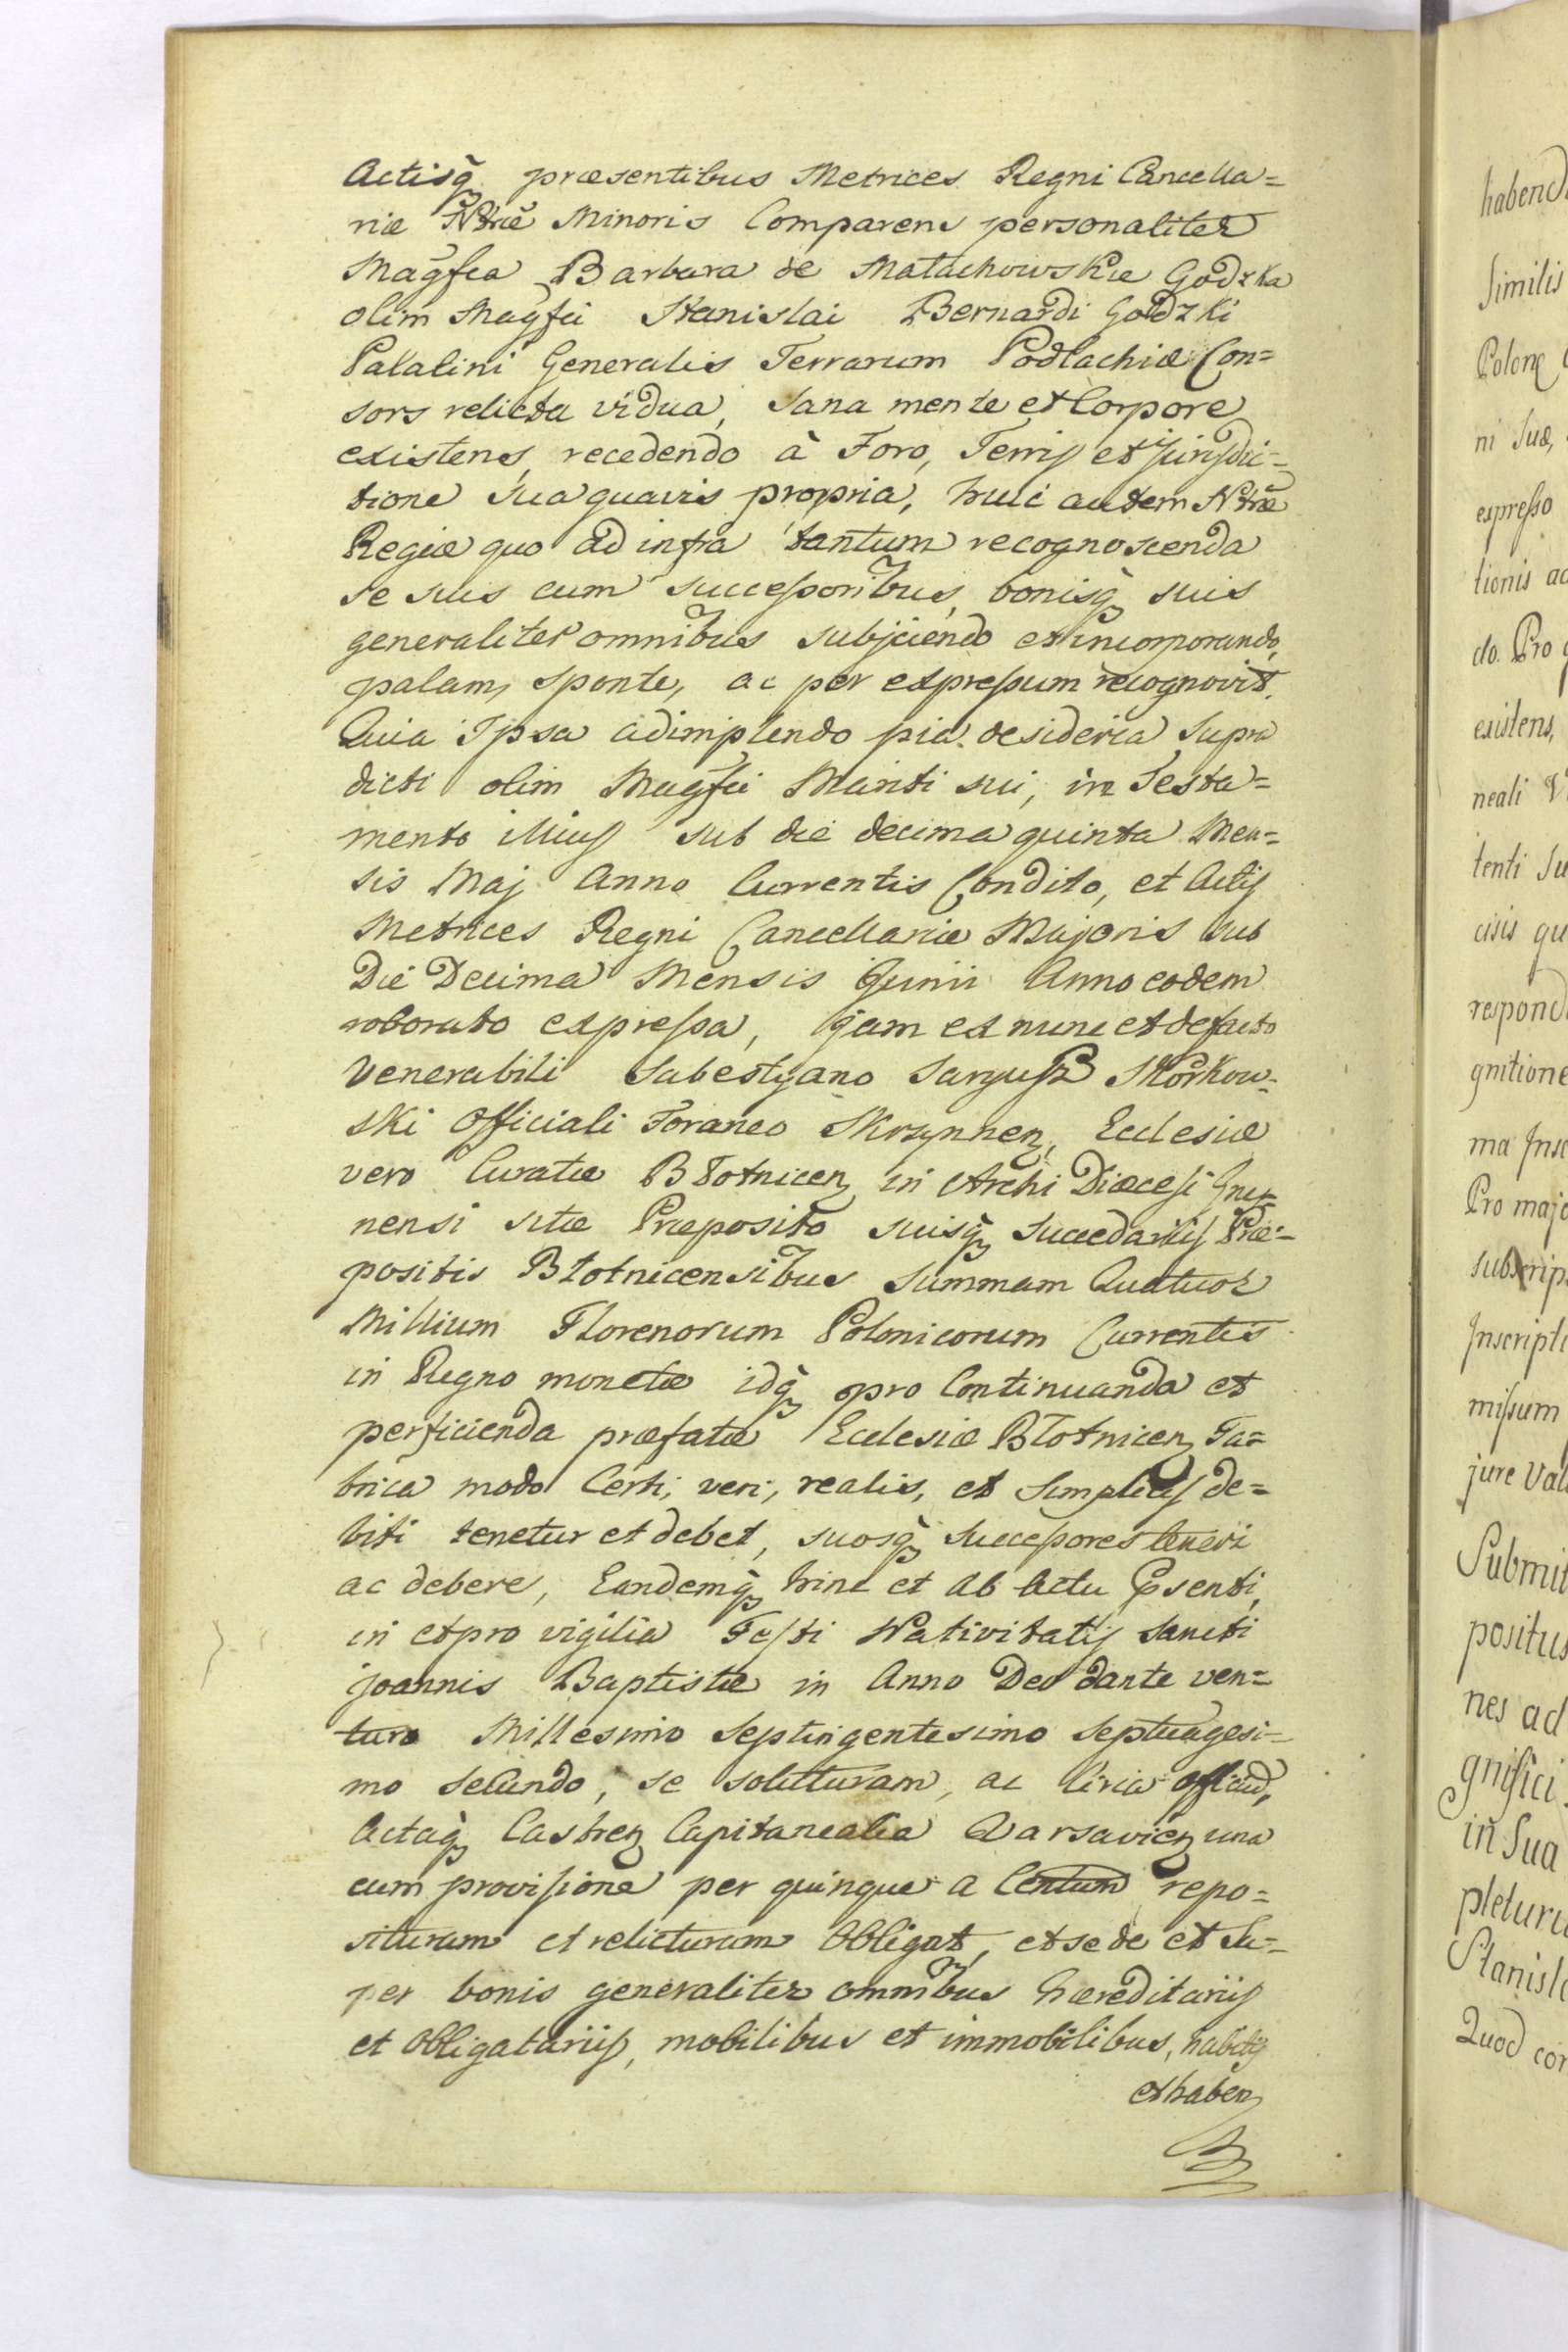 Actisq̃ præsentibus Metrices Regni Cancella=
riæ Ntræ Minoris Comparens personaliter
Magfca Barbara de Małachowskie Godzka
olim Magfci Stanislai Bernardi Godzki
Palatini Generalis Terrarum Podlachiæ Con=
sors relicta vidua, Sana mente et Corpore
existens, recedendo à Foro, Terris et Jurisdic=
tione sua quavis propria, huic autem Ntræ
Regiæ quo ad infra tantum recognoscenda
se suis cum successoribus, bonisq̃ suis
generaliter omnibus subjiciendo et incorporando,
palam, sponte, ac per expressum recognovit.
Quia Ipsa adimplendo pia desideria Supra
dicti olim Magfci Mariti sui, in Testa=
mento illius sub die decima quinta Men=
sis Maj Anno Currentis Condito, et Actis
Metrices Regni Cancellariæ Majoris sub
Die Decima Mensis Junii Anno eodem
roborato expressa, jam ex nunc et defacto
Venerabili Sabestyano Saryusz Skorkow=
ski Officiali Foraneo Skrzynnen, Ecclesiæ
vero Curatæ Błotnicen in Archi Diæcesi Gnez=
nensi sitæ Præposito suisq̃ Succedaniis Præ=
positis Błotnicensibus Summam Quatuor
Millium Florenorum Polonicorum Currentis
in Regno monetæ idq̃ pro Continuanda et
perficienda præfatæ Ecclesiæ Błotnicen Fa=
brica modo Certi, veri, realis, et Simplicis de=
biti tenetur et debet, suosq̃ Successores teneri
ac debere, Eandemq̃ hinc et ab Actu Psenti,
in et pro vigilia Festi Nativitatis Sancti
Joannis Baptistæ in Anno Deo dante ven=
turo Millesimo Septingentesimo Septuagesi=
mo Secundo, se soluturam, ac circa Officiũ,
Actaq̃ Castren Capitanealia Varsavien una
cum provisione per quinque a Centum repo=
situram et relicturam Obligat, et se de et Su=
per bonis generaliter omnibus hæreditariis
et Obligatariis, mobilibus et immobilibus, habitis
et haben

habend
Similis
Polon
ni Suæ,
expresso
tionis ac
do. Pro
existens,
neali
tenti Su
cisis qu
respond
gnitione
ma Insc
Pro majo
subscrip
Inscripti
missum
jure Val
Submit
positus
nes ad
gnifici
in Sua
pletur
Stanisl
Quod cor